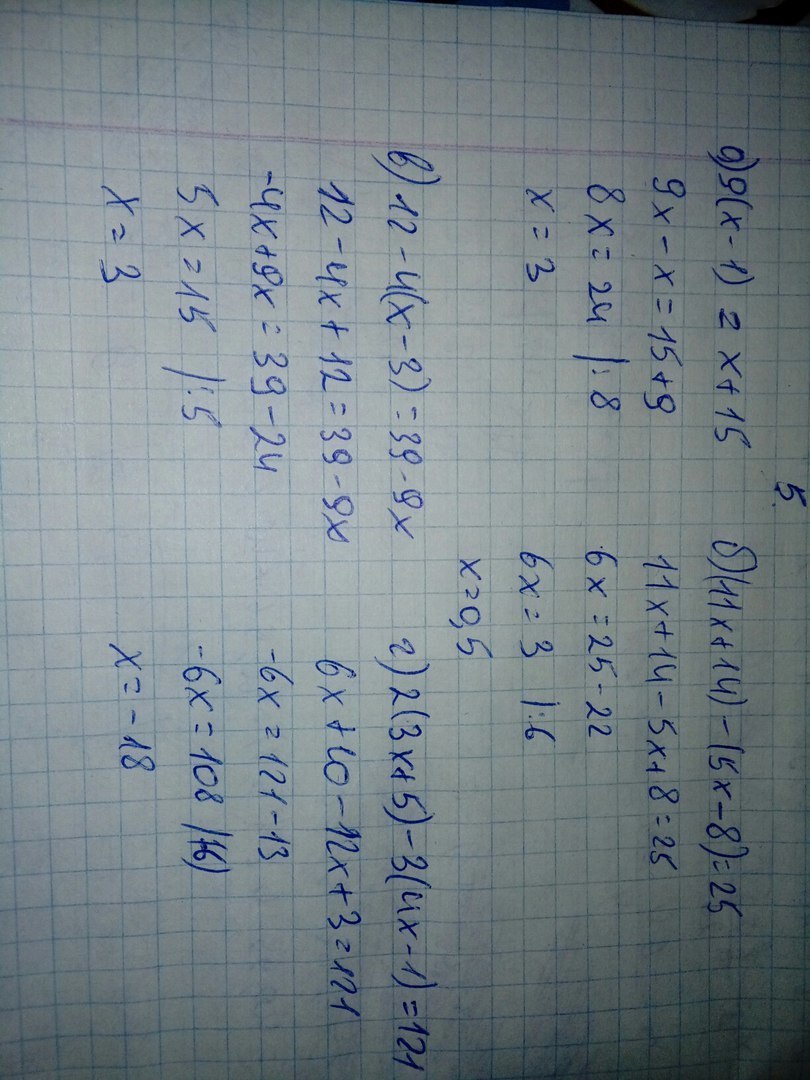 5.
а) 9(x-1) = x+15
9x-x=15+9
8x=24 |:8
x=3
б) (11x+14)-(5x-8)=25
11x+14-5x+8=25
6x=25-22
6x=3 |:6
x=0,5
в) 12-4(x-3)=39-9x
12-4x+12=39-9x
-4x+9x=39-24
5x=15 |:5
x=3
г) 2(3x+5)-3(4x-1)=121
6x+10-12x+3=121
-6x=121-13
-6x=108
x=-18